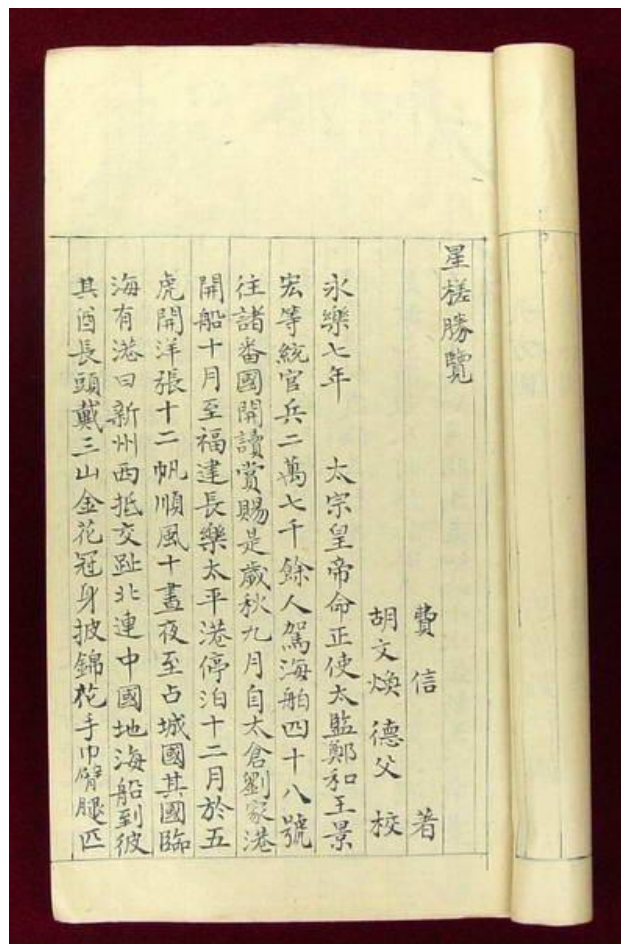 星槎勝覽
費信著
胡文煥德父校
永樂七年 太宗皇帝命正使太監鄭和王景
宏等統官兵二萬七千餘人駕海舶四十八號
往諸番國開讀賞賜是歲秋九月自太倉劉家港
開船十月至福建長樂太平港停泊十二月於五
虎開洋張十二帆順風十晝夜至占城國其國臨
海有港曰新州西抵交趾北連中國地海船到彼
其酋長頭戴三山金花冠身披錦花手巾臂腿匹